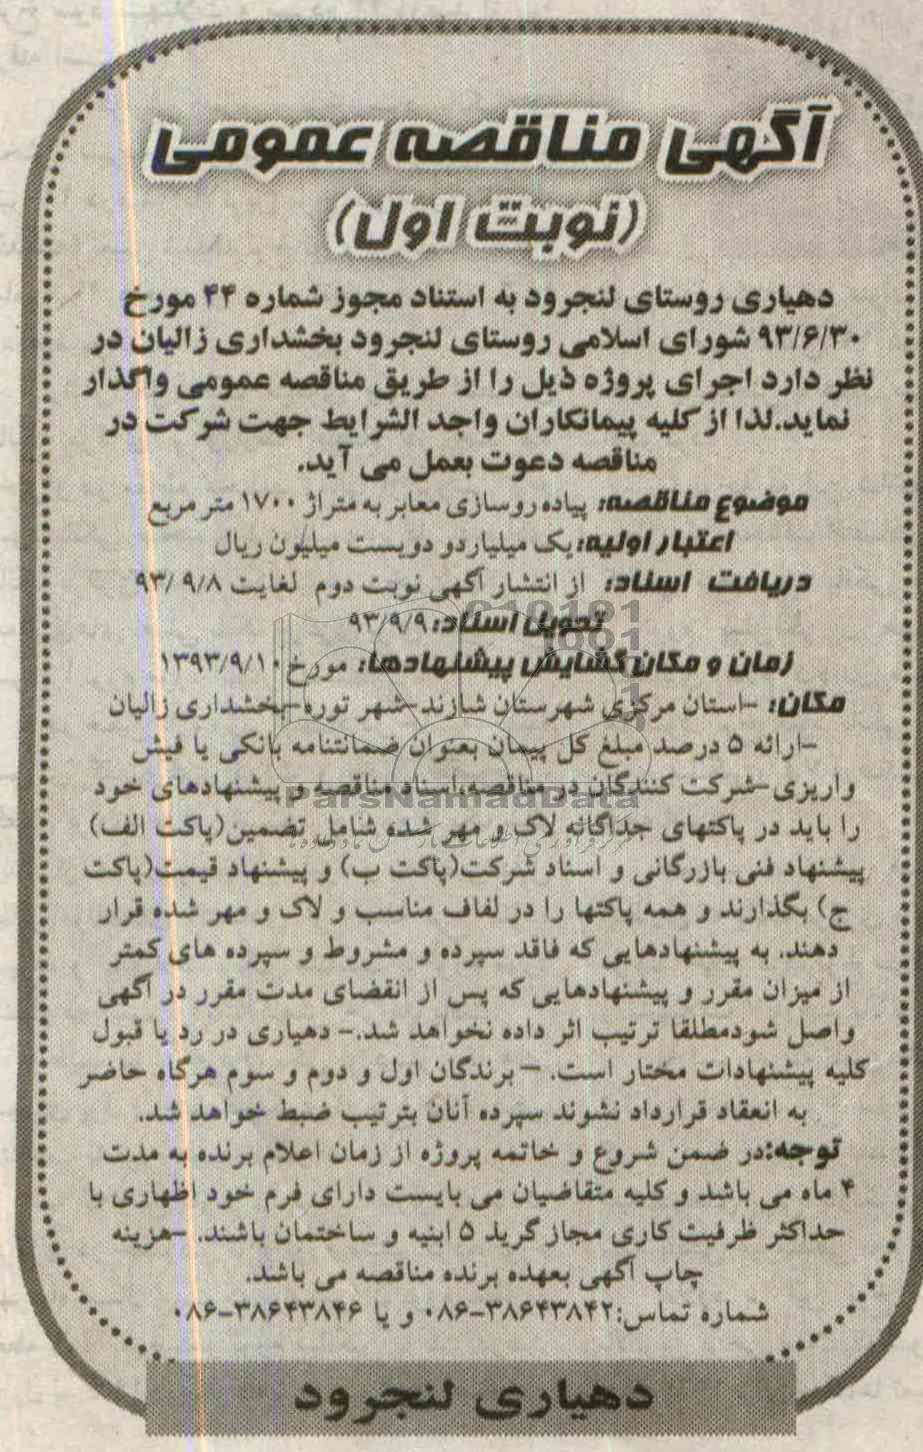 آگهی مناقصه عمومی
(نوبت اول)
دهیاری روستای لنجرود به استناد مجوز شماره ۴۴ مورخ
۹۳/۶/۳۰ شورای اسلامی روستای لنجرود بخشداری زالیان در
نظر دارد اجرای پروژه ذیل را از طریق مناقصه عمومی واگذار
نماید.لذا از کلیه پیمانکاران واجد الشرایط جهت شرکت در
مناقصه دعوت بعمل می آید.
موضوع مناقصه: پیاده روسازی معابر به متراژ ۱۷۰۰ متر مربع
اعتبار اولیه: یک میلیارد و دویست میلیون ریال
دریافت اسناد: از انتشار آگهی نوبت دوم لغایت ۹۳/۹/۸
تحویل اسناد: ۹۳/۹/۹
زمان و مکان گشایش پیشنهادها: مورخ ۱۳۹۳/۹/۱۰
مکان: -استان مرکزی شهرستان شازند-شهر توره-بخشداری زالیان
-ارائه ۵ درصد مبلغ کل پیمان بعنوان ضمانتنامه بانکی یا فیش
واریزی-شرکت کنندگان در مناقصه،اسناد مناقصه و پیشنهادهای خود
را باید در پاکتهای جداگانه لاک و مهر شده شامل تضمین(پاکت الف)
پیشنهاد فنی بازرگانی و اسناد شرکت(پاکت ب) و پیشنهاد قیمت(پاکت
ج) بگذارند و همه پاکتها را در لفاف مناسب و لاک و مهر شده قرار
دهند. به پیشنهادهایی که فاقد سپرده و مشروط و سپرده های کمتر
از میزان مقرر و پیشنهادهایی که پس از انقضای مدت مقرر در آگهی
واصل شودمطلقا ترتیب اثر داده نخواهد شد.- دهیاری در رد یا قبول
کلیه پیشنهادات مختار است. - برندگان اول و دوم و سوم هرگاه حاضر
به انعقاد قرارداد نشوند سپرده آنان بترتیب ضبط خواهد شد.
توجه:در ضمن شروع و خاتمه پروژه از زمان اعلام برنده به مدت
۴ ماه می باشد و کلیه متقاضیان می بایست دارای فرم خود اظهاری با
حداکثر ظرفیت کاری مجاز گرید ۵ ابنیه و ساختمان باشند. -هزینه
چاپ آگهی بعهده برنده مناقصه می باشد.
شماره تماس:۳۸۶۴۳۸۴۲-۰۸۶ و یا ۳۸۶۴۳۸۴۶-۰۸۶
دهیاری لنجرود
ParsNamadData